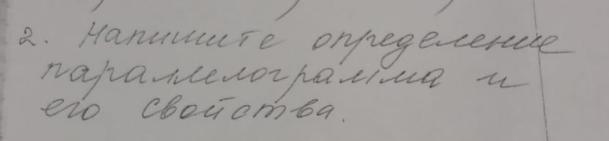 2. Напишите определение
параллелограмма и
его свойства.